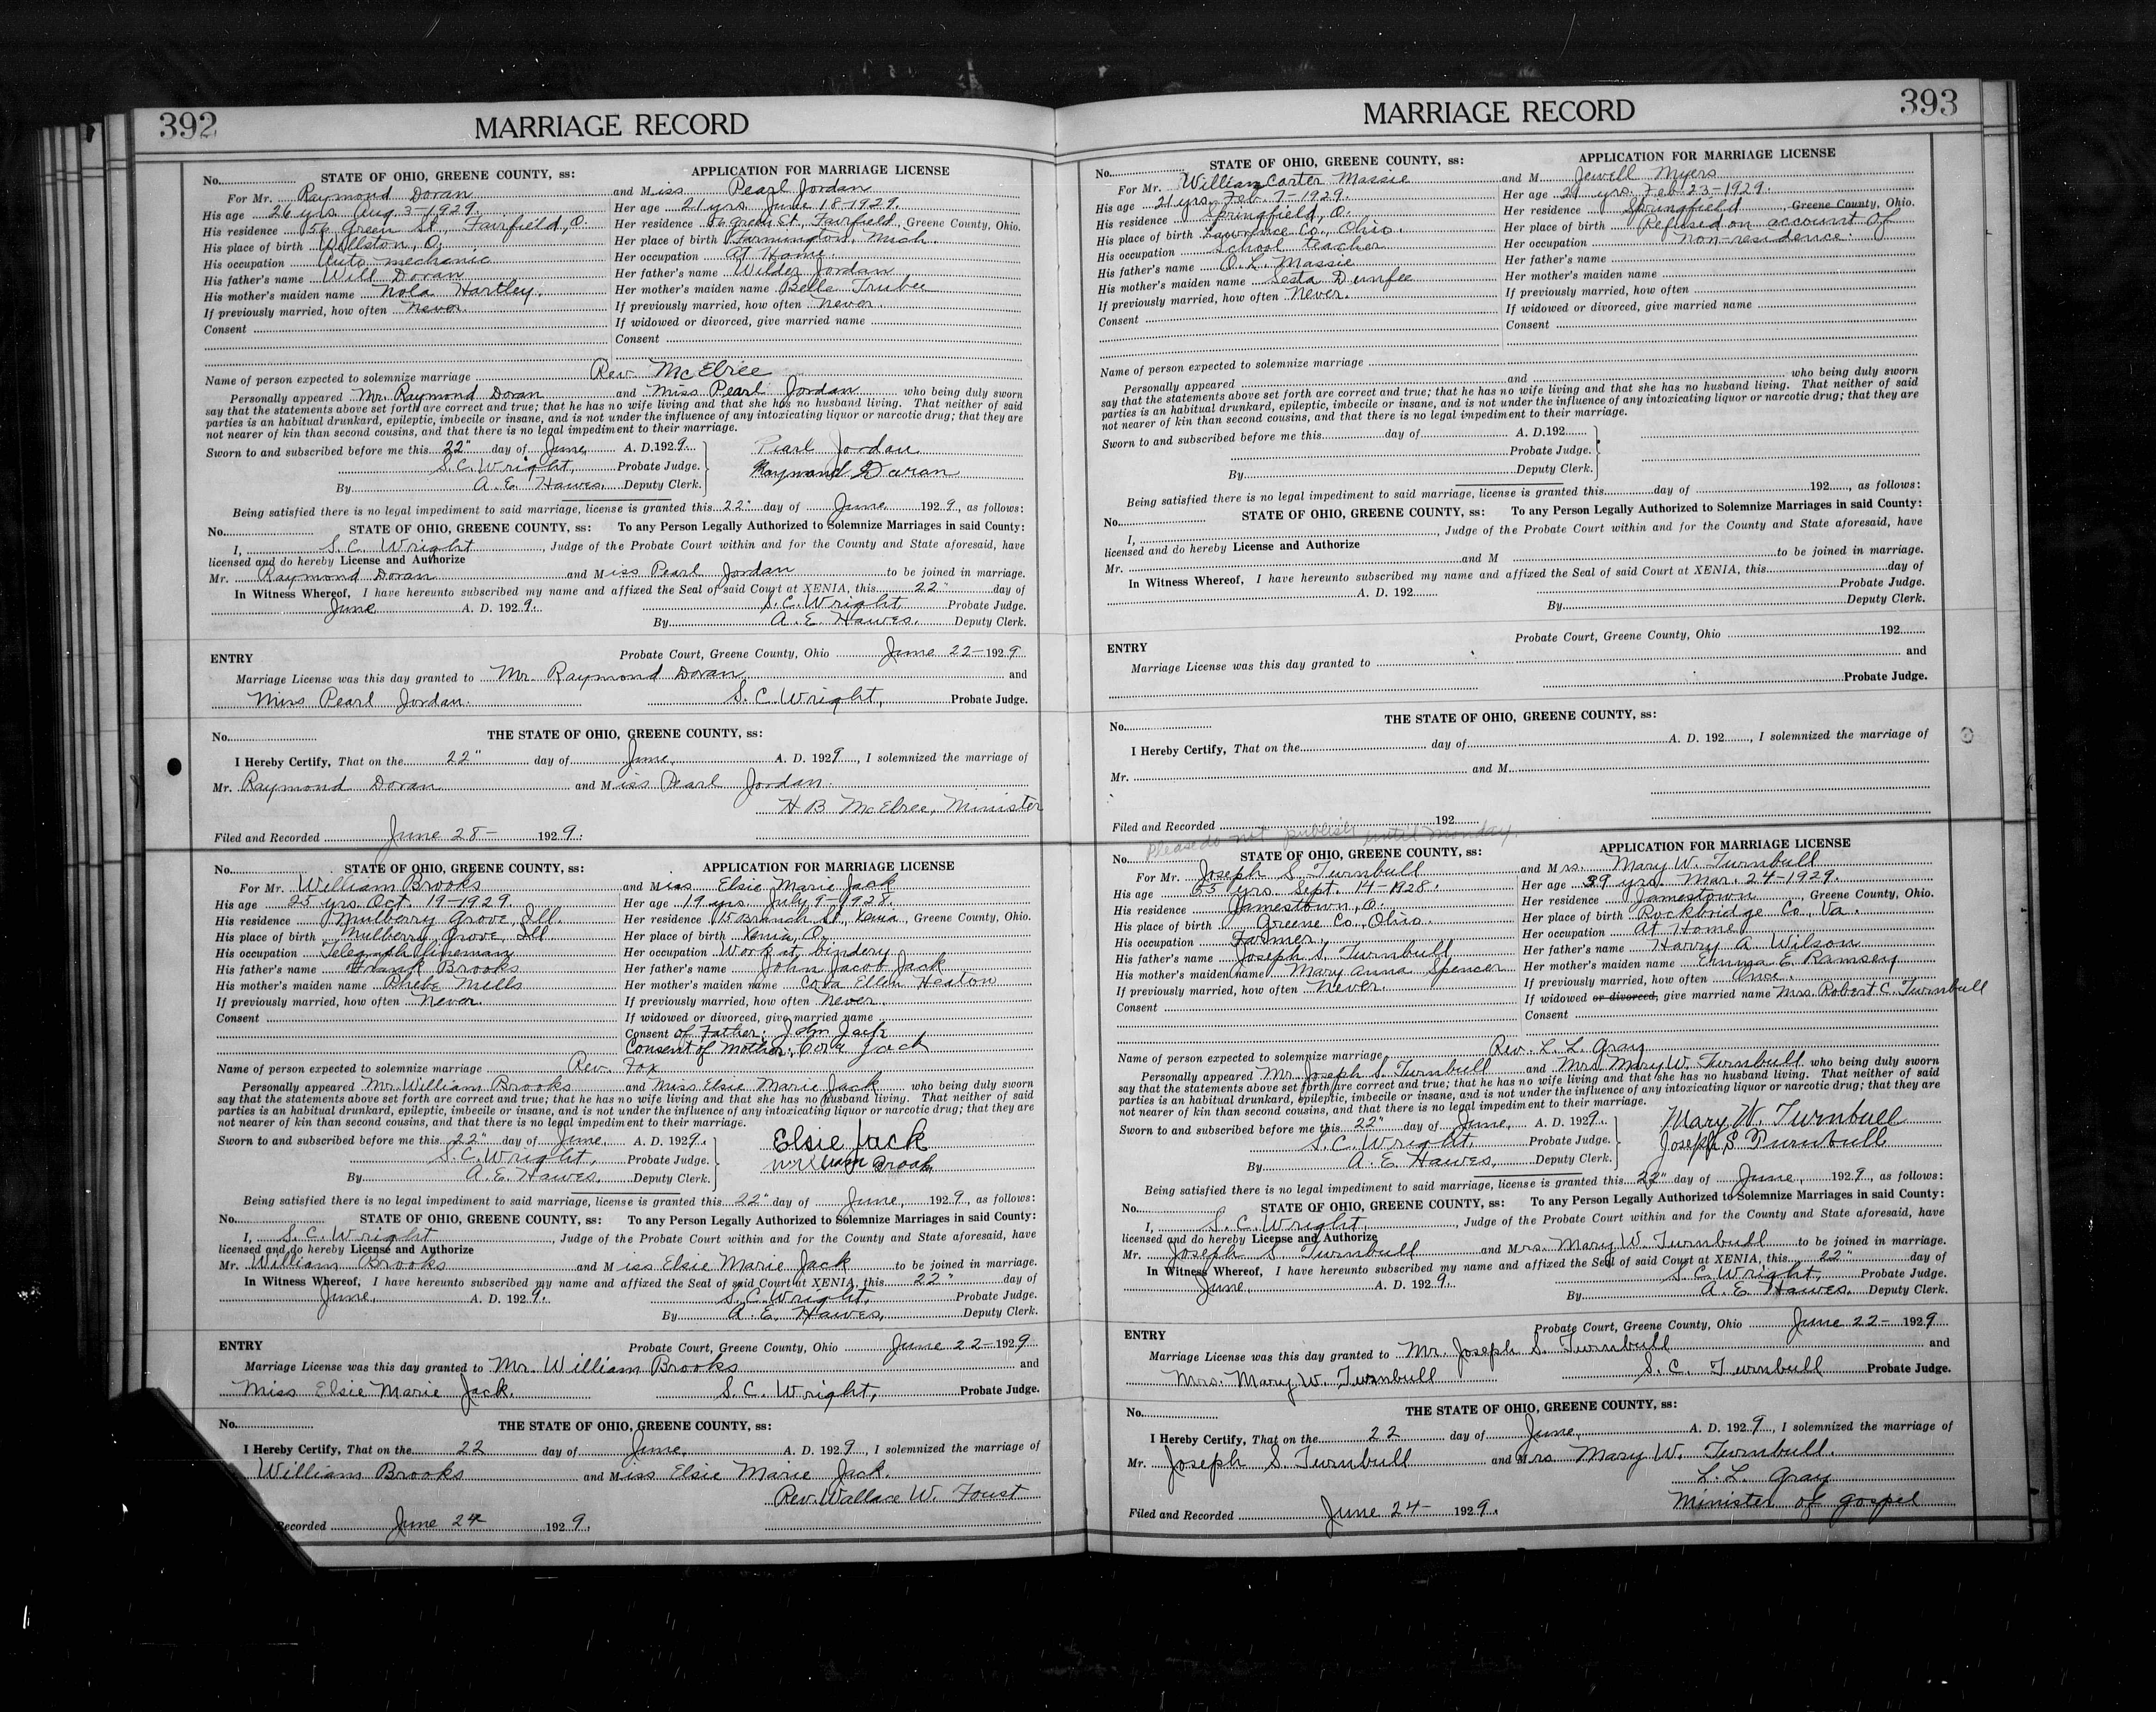 392
MARRIAGE RECORD
No. STATE OF OHIO, GREENE COUNTY, ss: APPLICATION FOR MARRIAGE LICENSE
For Mr. Raymond Doran and Miss Pearl Jordan
His age 26 yrs Aug 3-1929 Her age 21 yrs June 18-1929.
His residence 56 Green St., Fairfield, O. Her residence 56 Green St., Fairfield, Greene County, Ohio.
His place of birth Wellston, O. Her place of birth Farmington, Mich.
His occupation Auto mechanic Her occupation At Home.
His father's name Will Doran Her father's name Wilder Jordan
His mother's maiden name Nola Hartley. Her mother's maiden name Belle Trubee
If previously married, how often never. If previously married, how often never.
Consent If widowed or divorced, give married name
Consent
Name of person expected to solemnize marriage Rev. McElree
Personally appeared Mr. Raymond Doran and Miss Pearl Jordan who being duly sworn
say that the statements above set forth are correct and true; that he has no wife living and that she has no husband living. That neither of said
parties is an habitual drunkard, epileptic, imbecile or insane, and is not under the influence of any intoxicating liquor or narcotic drug; that they are
not nearer of kin than second cousins, and that there is no legal impediment to their marriage.
Sworn to and subscribed before me this 22" day of June, A. D. 1929. Pearl Jordan
S.C. Wright, Probate Judge. Raymond Doran
By A. E. Hawes, Deputy Clerk.
Being satisfied there is no legal impediment to said marriage, license is granted this 22" day of June 1929, as follows:
No. STATE OF OHIO, GREENE COUNTY, ss: To any Person Legally Authorized to Solemnize Marriages in said County:
I, S. C. Wright, Judge of the Probate Court within and for the County and State aforesaid, have
licensed and do hereby License and Authorize
Mr. Raymond Doran and Miss Pearl Jordan to be joined in marriage.
In Witness Whereof, I have hereunto subscribed my name and affixed the Seal of said Court at XENIA, this 22" day of
June A. D. 1929. S.C. Wright Probate Judge.
By A. E. Hawes, Deputy Clerk.
ENTRY Probate Court, Greene County, Ohio June 22-1929
Marriage License was this day granted to Mr. Raymond Doran and
Miss Pearl Jordan. S. C. Wright, Probate Judge.
No. THE STATE OF OHIO, GREENE COUNTY, ss:
I Hereby Certify, That on the 22" day of June, A. D. 1929, I solemnized the marriage of
Mr. Raymond Doran and Miss Pearl Jordan.
H B McElree, Minister
Filed and Recorded June 28- 1929.
No. STATE OF OHIO, GREENE COUNTY, ss: APPLICATION FOR MARRIAGE LICENSE
For Mr. William Brooks and Miss Elsie Marie Jack
His age 25 yrs. Oct. 19-1929. Her age 19 yrs. July 9-1928.
His residence Mulberry Grove, Ill. Her residence 15 Branch St., Xenia, Greene County, Ohio.
His place of birth Mulberry Grove, Ill Her place of birth Xenia, O.
His occupation Telegraph lineman Her occupation Work at bindery
His father's name Frank Brooks Her father's name John Jacob Jack
His mother's maiden name Phebe Mills Her mother's maiden name Cora Ellen Heaton
If previously married, how often never. If previously married, how often never.
Consent If widowed or divorced, give married name
Consent of Father: John Jack
Consent of Mother: Cora Jack
Name of person expected to solemnize marriage Rev. Fox
Personally appeared Mr. William Brooks and Miss Elsie Marie Jack who being duly sworn
say that the statements above set forth are correct and true; that he has no wife living and that she has no husband living. That neither of said
parties is an habitual drunkard, epileptic, imbecile or insane, and is not under the influence of any intoxicating liquor or narcotic drug; that they are
not nearer of kin than second cousins, and that there is no legal impediment to their marriage.
Sworn to and subscribed before me this 22" day of June, A. D. 1929. Elsie Jack
S.C. Wright, Probate Judge. William Brooks
By A. E. Hawes, Deputy Clerk.
Being satisfied there is no legal impediment to said marriage, license is granted this 22" day of June, 1929, as follows:
No. STATE OF OHIO, GREENE COUNTY, ss: To any Person Legally Authorized to Solemnize Marriages in said County:
I, S. C. Wright, Judge of the Probate Court within and for the County and State aforesaid, have
licensed and do hereby License and Authorize
Mr. William Brooks and Miss Elsie Marie Jack to be joined in marriage.
In Witness Whereof, I have hereunto subscribed my name and affixed the Seal of said Court at XENIA, this 22" day of
June, A. D. 1929. S.C. Wright, Probate Judge.
By A. E. Hawes, Deputy Clerk.
ENTRY Probate Court, Greene County, Ohio June 22-1929
Marriage License was this day granted to Mr. William Brooks and
Miss Elsie Marie Jack. S. C. Wright, Probate Judge.
No. THE STATE OF OHIO, GREENE COUNTY, ss:
I Hereby Certify, That on the 22 day of June, A. D. 1929, I solemnized the marriage of
William Brooks and Miss Elsie Marie Jack.
Rev. Wallace W. Foust
Recorded June 24 1929.
MARRIAGE RECORD
393
No. STATE OF OHIO, GREENE COUNTY, ss: APPLICATION FOR MARRIAGE LICENSE
For Mr. William Carter Massie and M Jewell Myers
His age 21 yrs. Feb. 7-1929. Her age 21 yrs. Feb 23-1929.
His residence Springfield, O. Her residence Springfield Greene County, Ohio.
His place of birth Lawrence Co., Ohio. Her place of birth Refused on account of
His occupation School teacher Her occupation non-residence.
His father's name O. L. Massie Her father's name
His mother's maiden name Sesta Dunfee Her mother's maiden name
If previously married, how often Never. If previously married, how often
Consent If widowed or divorced, give married name
Consent
Name of person expected to solemnize marriage
Personally appeared and who being duly sworn
say that the statements above set forth are correct and true; that he has no wife living and that she has no husband living. That neither of said
parties is an habitual drunkard, epileptic, imbecile or insane, and is not under the influence of any intoxicating liquor or narcotic drug; that they are
not nearer of kin than second cousins, and that there is no legal impediment to their marriage.
Sworn to and subscribed before me this day of A. D. 192
Probate Judge.
By Deputy Clerk.
Being satisfied there is no legal impediment to said marriage, license is granted this day of 192, as follows:
No. STATE OF OHIO, GREENE COUNTY, ss: To any Person Legally Authorized to Solemnize Marriages in said County:
I, , Judge of the Probate Court within and for the County and State aforesaid, have
licensed and do hereby License and Authorize
Mr. and M to be joined in marriage.
In Witness Whereof, I have hereunto subscribed my name and affixed the Seal of said Court at XENIA, this day of
A. D. 192 Probate Judge.
By Deputy Clerk.
ENTRY Probate Court, Greene County, Ohio 192
Marriage License was this day granted to and
Probate Judge.
No. THE STATE OF OHIO, GREENE COUNTY, ss:
I Hereby Certify, That on the day of A. D. 192, I solemnized the marriage of
Mr. and M
Filed and Recorded 192
Please do not publish until Monday.
No. STATE OF OHIO, GREENE COUNTY, ss: APPLICATION FOR MARRIAGE LICENSE
For Mr. Joseph S. Turnbull and Mrs. Mary W. Turnbull
His age 53 yrs. Sept. 14-1928. Her age 39 yrs. Mar. 24-1929.
His residence Jamestown, O. Her residence Jamestown, Greene County, Ohio.
His place of birth Greene Co., Ohio. Her place of birth Rockbridge Co., Va.
His occupation Farmer Her occupation At Home
His father's name Joseph S. Turnbull Her father's name Harry A. Wilson
His mother's maiden name Mary Anna Spencer Her mother's maiden name Emma E. Ramsey
If previously married, how often Never. If previously married, how often Once.
Consent If widowed or divorced, give married name Mrs. Robert C. Turnbull
Consent
Name of person expected to solemnize marriage Rev. L. L. Gray
Personally appeared Mr. Joseph S. Turnbull and Mrs Mary W. Turnbull who being duly sworn
say that the statements above set forth are correct and true; that he has no wife living and that she has no husband living. That neither of said
parties is an habitual drunkard, epileptic, imbecile or insane, and is not under the influence of any intoxicating liquor or narcotic drug; that they are
not nearer of kin than second cousins, and that there is no legal impediment to their marriage.
Sworn to and subscribed before me this 22" day of June, A. D. 1929. Mary W. Turnbull
S.C. Wright, Probate Judge. Joseph S Turnbull
By A. E. Hawes, Deputy Clerk.
Being satisfied there is no legal impediment to said marriage, license is granted this 22" day of June, 1929, as follows:
No. STATE OF OHIO, GREENE COUNTY, ss: To any Person Legally Authorized to Solemnize Marriages in said County:
I, S. C. Wright, Judge of the Probate Court within and for the County and State aforesaid, have
licensed and do hereby License and Authorize
Mr. Joseph S. Turnbull and Mrs. Mary W. Turnbull to be joined in marriage.
In Witness Whereof, I have hereunto subscribed my name and affixed the Seal of said Court at XENIA, this 22" day of
June, A. D. 1929. S. C. Wright, Probate Judge.
By A. E. Hawes, Deputy Clerk.
ENTRY Probate Court, Greene County, Ohio June 22- 1929
Marriage License was this day granted to Mr. Joseph S. Turnbull and
Mrs. Mary W. Turnbull S. C. Turnbull Probate Judge.
No. THE STATE OF OHIO, GREENE COUNTY, ss:
I Hereby Certify, That on the 22 day of June, A. D. 1929, I solemnized the marriage of
Mr. Joseph S. Turnbull and Mrs Mary W. Turnbull.
L. L. Gray
Filed and Recorded June 24- 1929. Minister of gospel